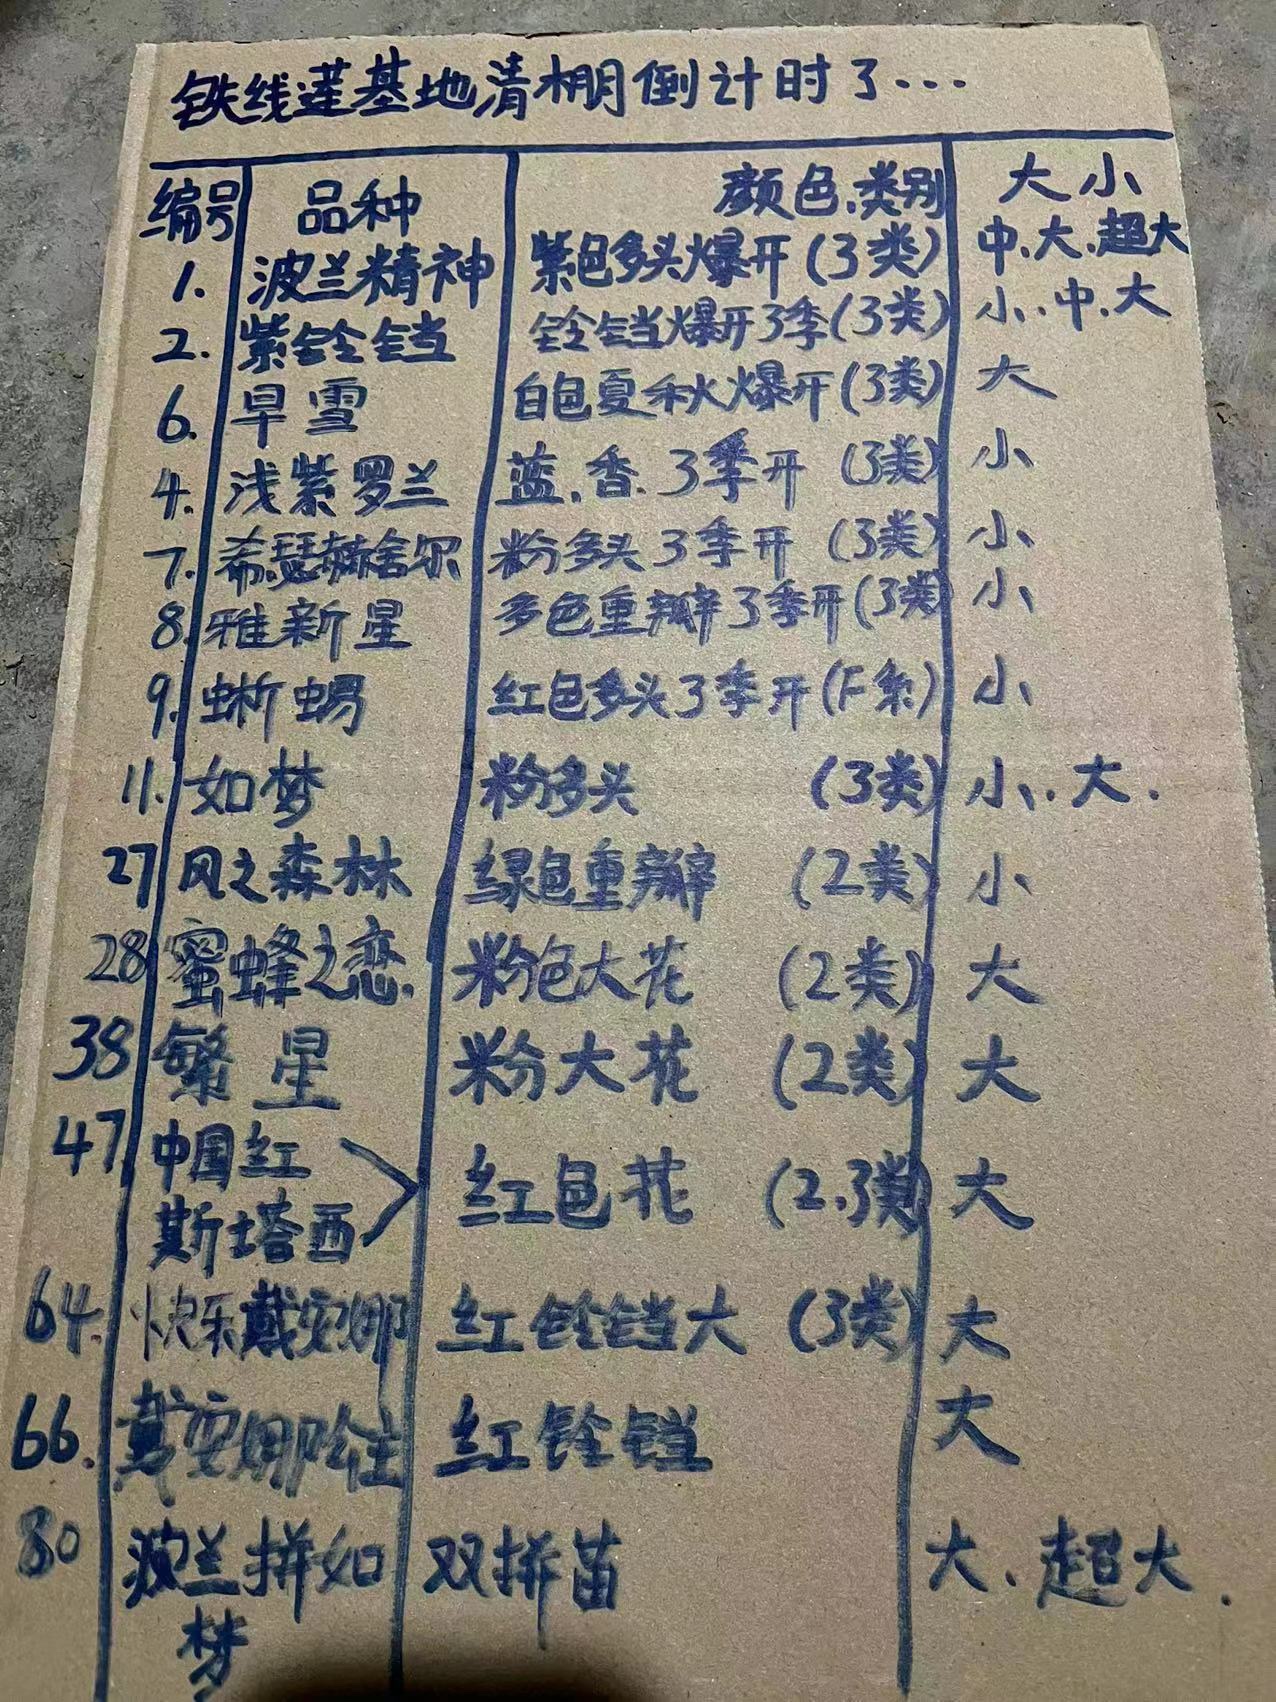 铁线莲基地清棚倒计时了...
编号 品种 颜色.类别 大小
1. 波兰精神 紫色多头爆开(3类) 中.大.超大
2. 紫铃铛 铃铛爆开3季(3类) 小.中.大
6. 早雪 白色夏秋爆开(3类) 大
4. 浅紫罗兰 蓝.香.3季开(3类) 小
7. 希瑟赫舍尔 粉多头3季开(3类) 小
8. 雅新星 多色重瓣3季开(3类) 小
9. 蜥蜴 红色多头3季开(F系) 小
11. 如梦 粉多头(3类) 小.大.
27 风之森林 绿色重瓣(2类) 小
28 蜜蜂之恋. 粉色大花(2类) 大
38 繁星 粉大花(2类) 大
47. 中国红
斯塔西 红色花(2.3类) 大
64. 快乐戴安娜 红铃铛大(3类) 大
66. 戴安娜 红铃铛 大
80 波兰拼如 双拼苗 大、超大.
梦